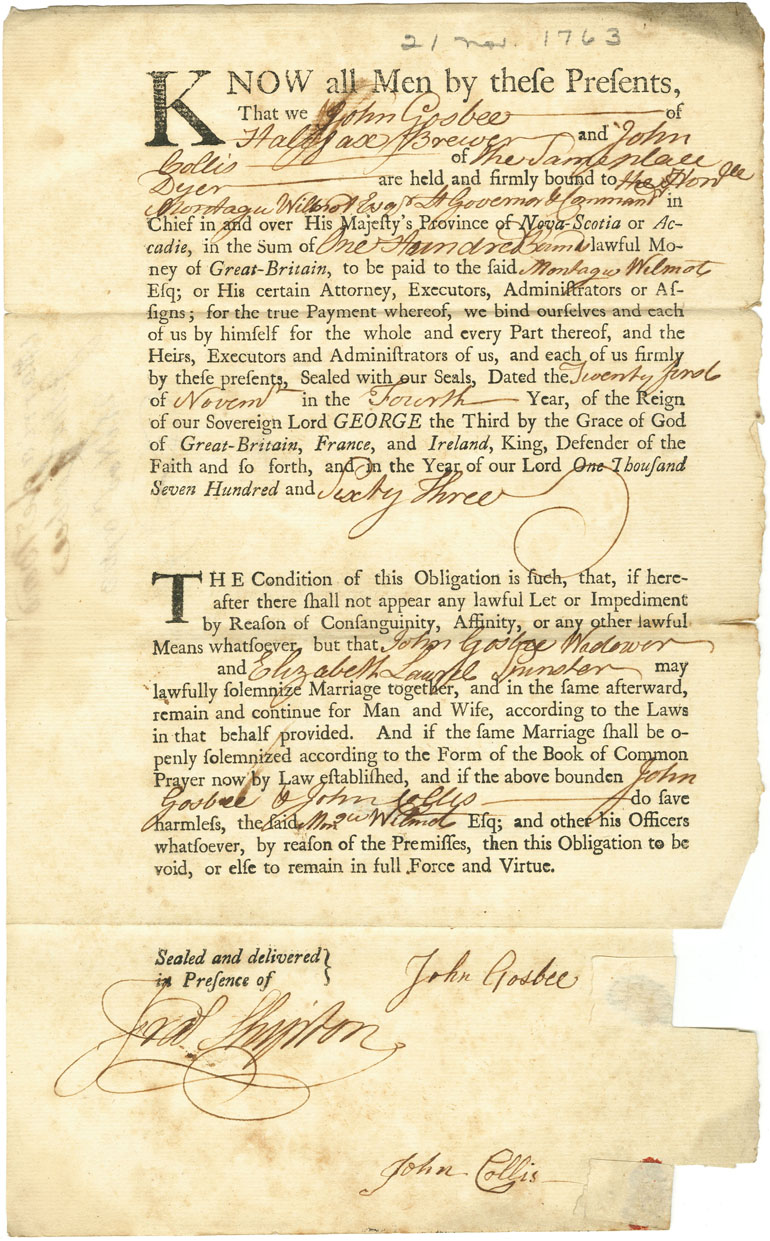 21 nov. 1763
KNOW all Men by theſe Preſents,
That we John Gosbee of
Halifax Brewer and John
Collis of the Same place
Dyer are held and firmly bound to the Honble
Montagu Wilmot Esqr Lt Governor & Command in
Chief in and over His Majeſty's Province of Nova-Scotia or Ac-
cadie, in the Sum of One Hundred lawful Mo-
ney of Great-Britain, to be paid to the ſaid Montagu Wilmot
Eſq; or His certain Attorney, Executors, Adminiſtrators or Aſ-
ſigns; for the true Payment whereof, we bind ourſelves and each
of us by himſelf for the whole and every Part thereof, and the
Heirs, Executors and Adminiſtrators of us, and each of us firmly
by theſe preſents, Sealed with our Seals, Dated the Twenty first
of Novemr in the Fourth Year, of the Reign
of our Sovereign Lord GEORGE the Third by the Grace of God
of Great-Britain, France, and Ireland, King, Defender of the
Faith and ſo forth, and in the Year of our Lord One Thouſand
Seven Hundred and Sixty Three
THE Condition of this Obligation is ſuch, that, if here-
after there ſhall not appear any lawful Let or Impediment
by Reaſon of Conſanguinity, Affinity, or any other lawful
Means whatſoever, but that John Gosbee Wadower
and Elizabeth Spinster may
lawfully ſolemnize Marriage together, and in the ſame afterward,
remain and continue for Man and Wife, according to the Laws
in that behalf provided. And if the ſame Marriage ſhall be o-
penly ſolemnized according to the Form of the Book of Common
Prayer now by Law eſtabliſhed, and if the above bounden John
Gosbee & John Collis do ſave
harmleſs, the ſaid Mngu Wilmot Eſq; and other his Officers
whatſoever, by reaſon of the Premiſſes, then this Obligation to be
void, or elſe to remain in full Force and Virtue.
Sealed and delivered
in Preſence of
John Gosbee
Fred Shipton
John Collis